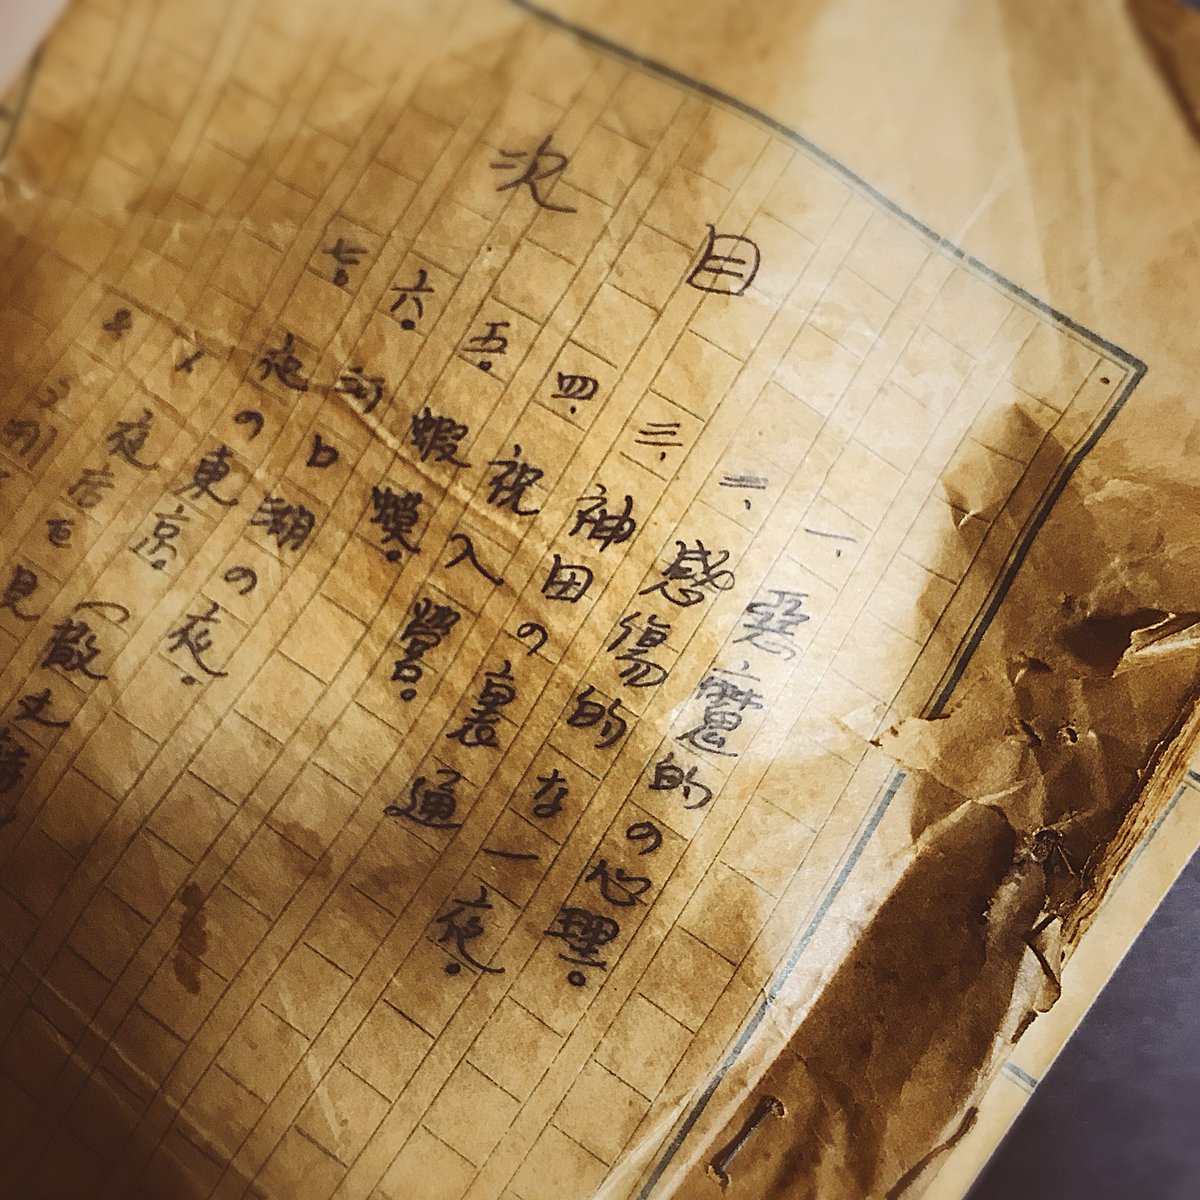 目次
一、惡魔的の心理。
二、感傷的な一夜。
三、神田の裏通
四、祝入營。
五、蝦蟆。
六、河口湖の夜。
七、夜の東京。(散文詩)
夜店を見